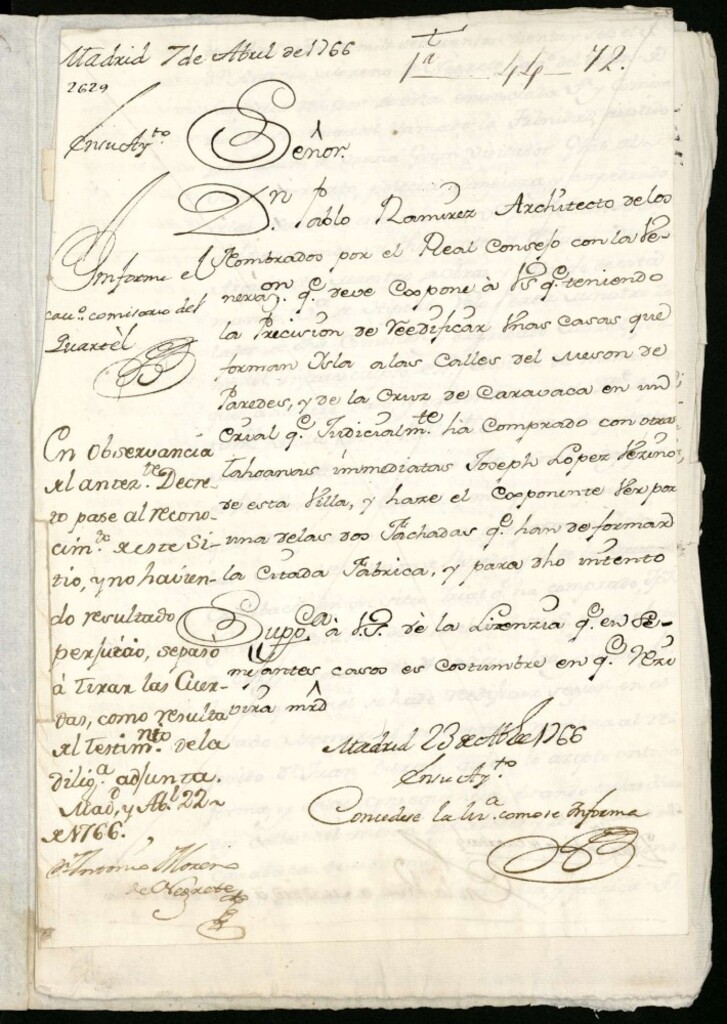 Madrid 7 de Abril de 1766
1ª 44 - 72.
2629
En su Ayto
Señor.
Dn. Pablo Ramirez Architecto de los
Nombrados por el Real Consejo con la Ve-
neraz.on q.e deve Expone à VS. q.e teniendo
la Precision de Reedificar Unas Casas que
forman Ysla a las Calles del Meson de
Paredes, y de la Cruz de Caravaca en un
q.e Judicialm.te ha Comprado con otras
Tahonas immediatas Joseph Lopez Vezino
de esta Villa, y haze el Exponente Ver por
una de las dos Fachadas q.e han de formar
la Citada Fabrica, y para dho intento
Supp.ca à VS. dè la Lizenzia q.e en Se-
mejantes casos es Costumbre en q.e Rezi-
virà mrd
Informe el
cav.o comisario del
Quartèl
En observancia
del antez.te Decre-
to pase al recono-
cim.to de este Si-
tio, y no havien-
do resultado
perjuicio, se pasò
à tirar las Cuer-
das, como resulta
del testim.nto de la
dilig.a adjunta.
Mad.d y Ab.l 22
de 1766.
Dn Antonio Moreno
de Negrete
Madrid 23 de Abl de 1766
En su Ay.to
Concedese la liz.a como se Informa